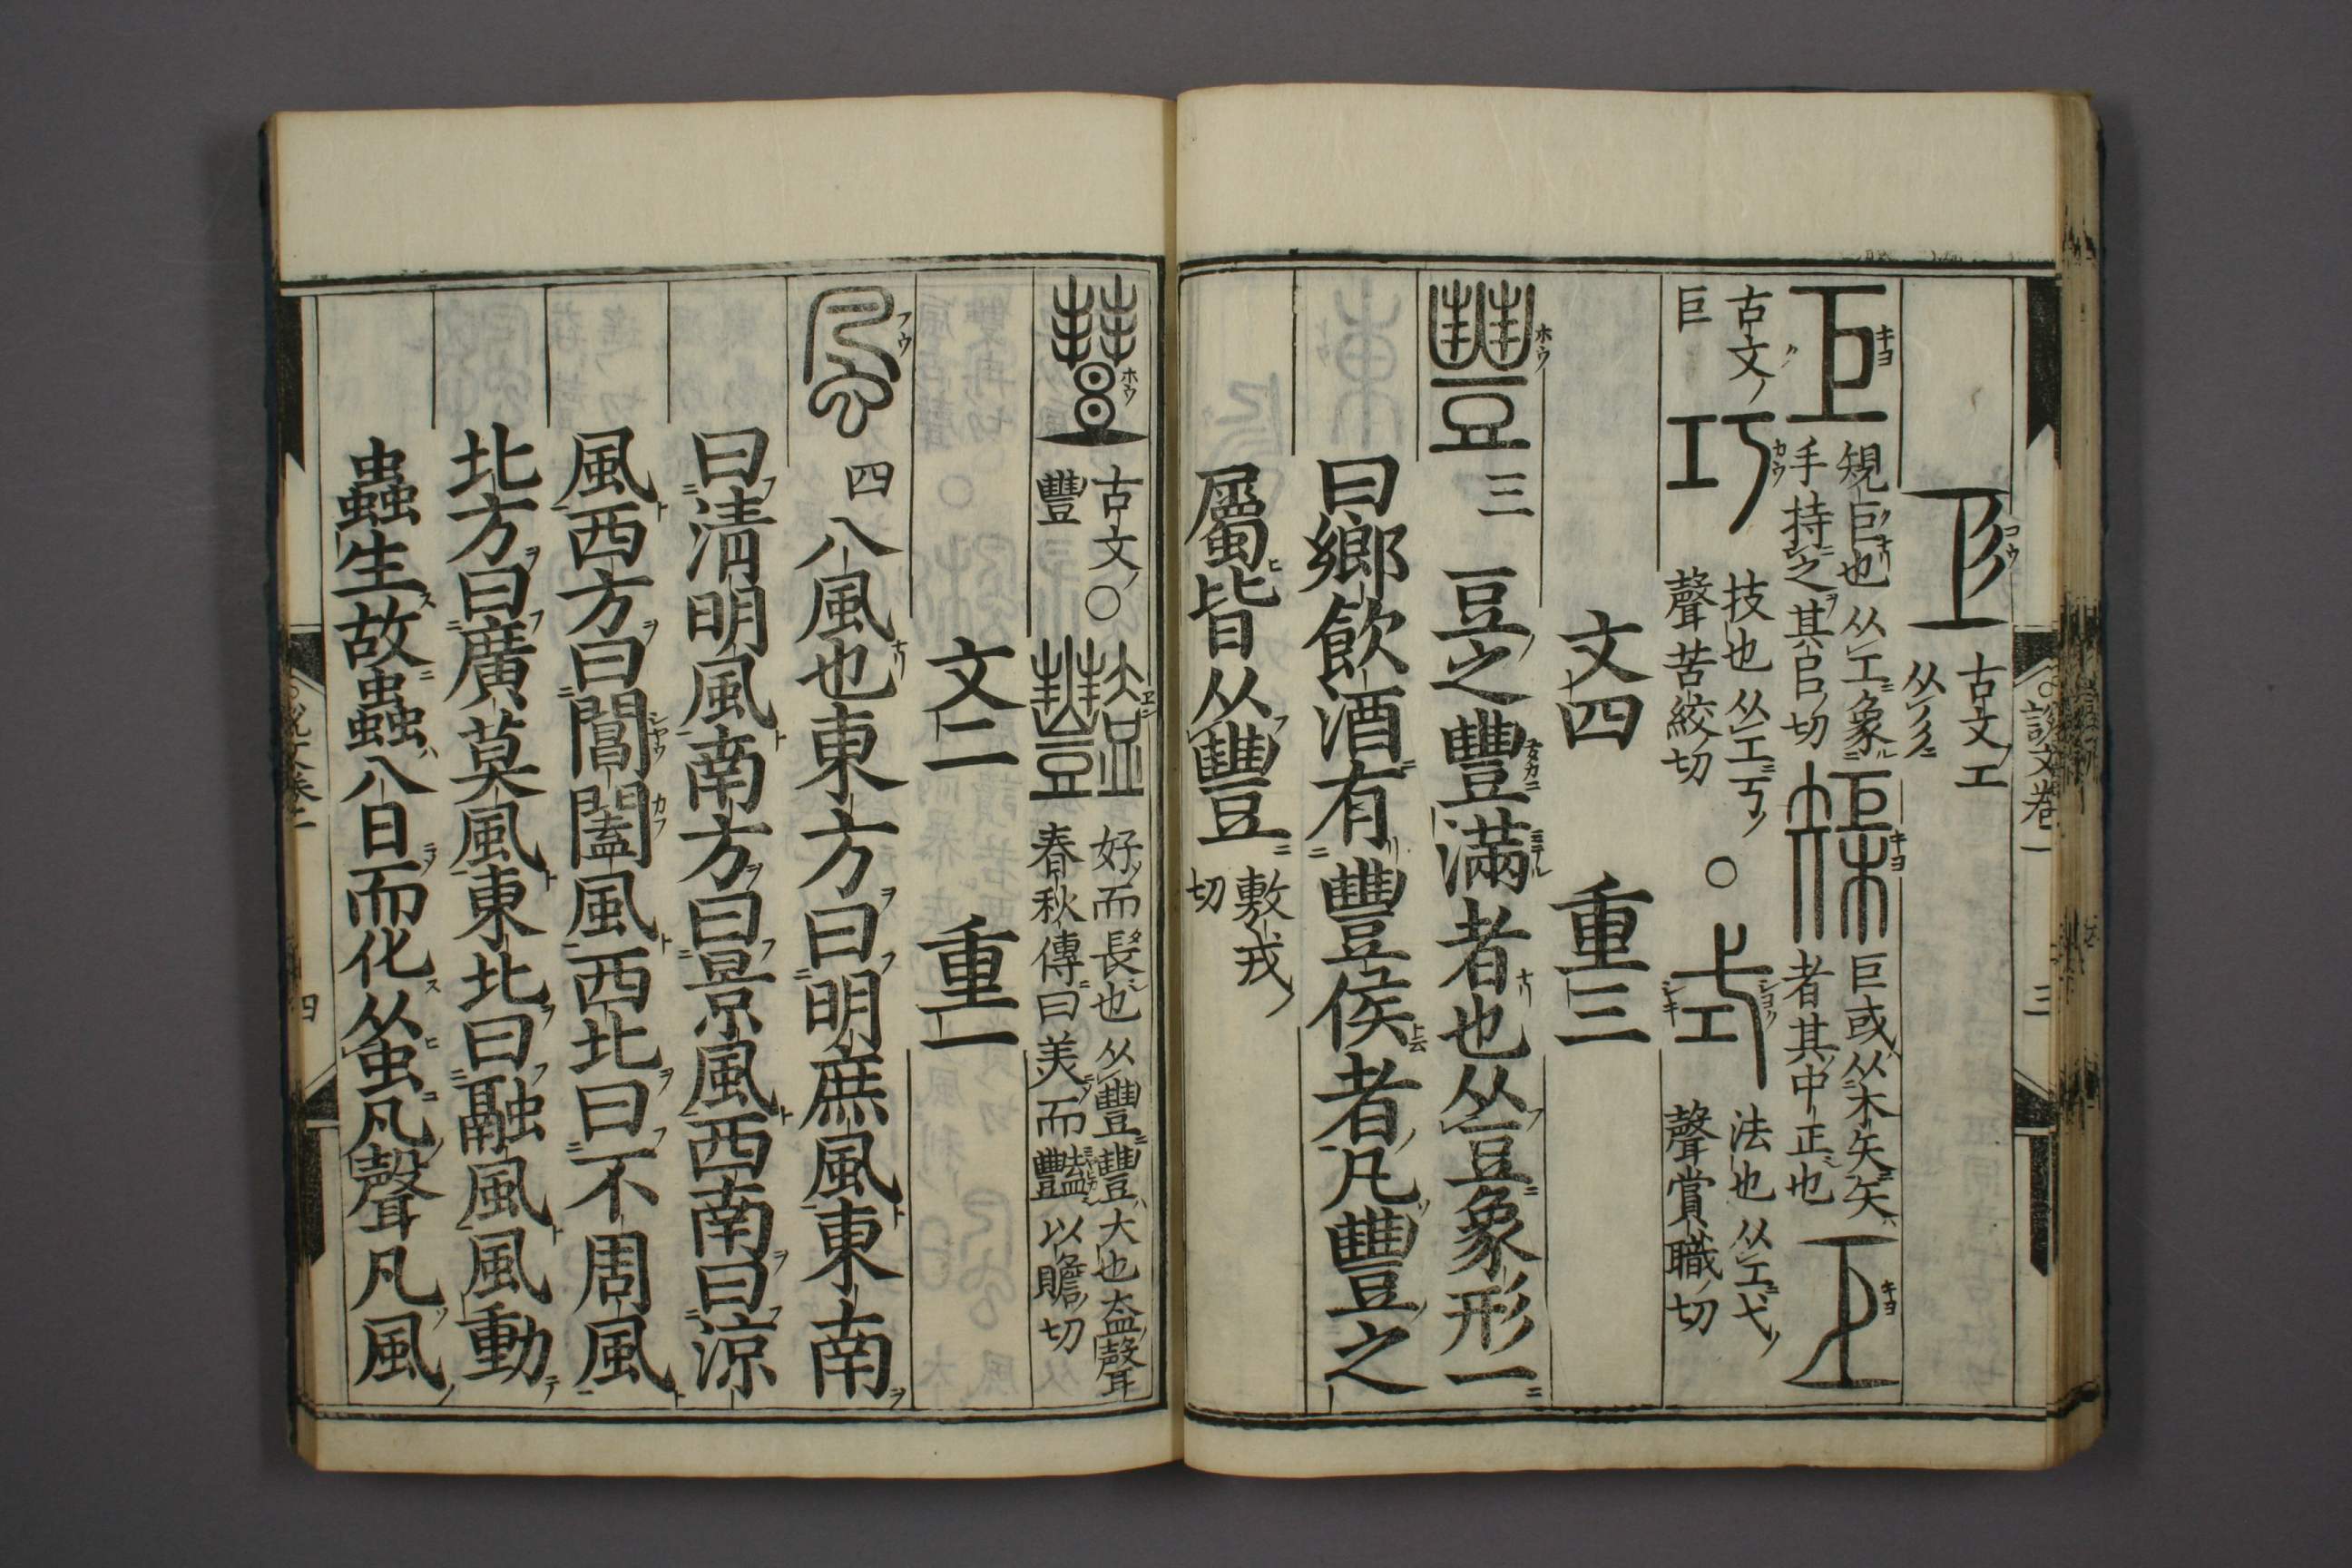 說文卷一 三
古文工
从彡
巨 規巨也从工象
手持之其呂切
榘 巨或从木矢矢
者其中正也
古文
巨
巧 技也从工丂
聲苦絞切
○
法也从工弋
聲賞職切
文四 重三
豐 三 豆之豐滿者也从豆象形一
曰鄉飲酒有豐侯者凡豐之
屬皆从豐 敷戎
切
古文
豐
○
豔 好而長也从豐豐大也盇聲
春秋傳曰美而豔 以贍切
文二 重一
風 四 八風也東方曰明庶風東南
曰清明風南方曰景風西南曰涼
風西方曰閶闔風西北曰不周風
北方曰廣莫風東北曰融風風動
蟲生故蟲八日而化从虫凡聲凡風
四